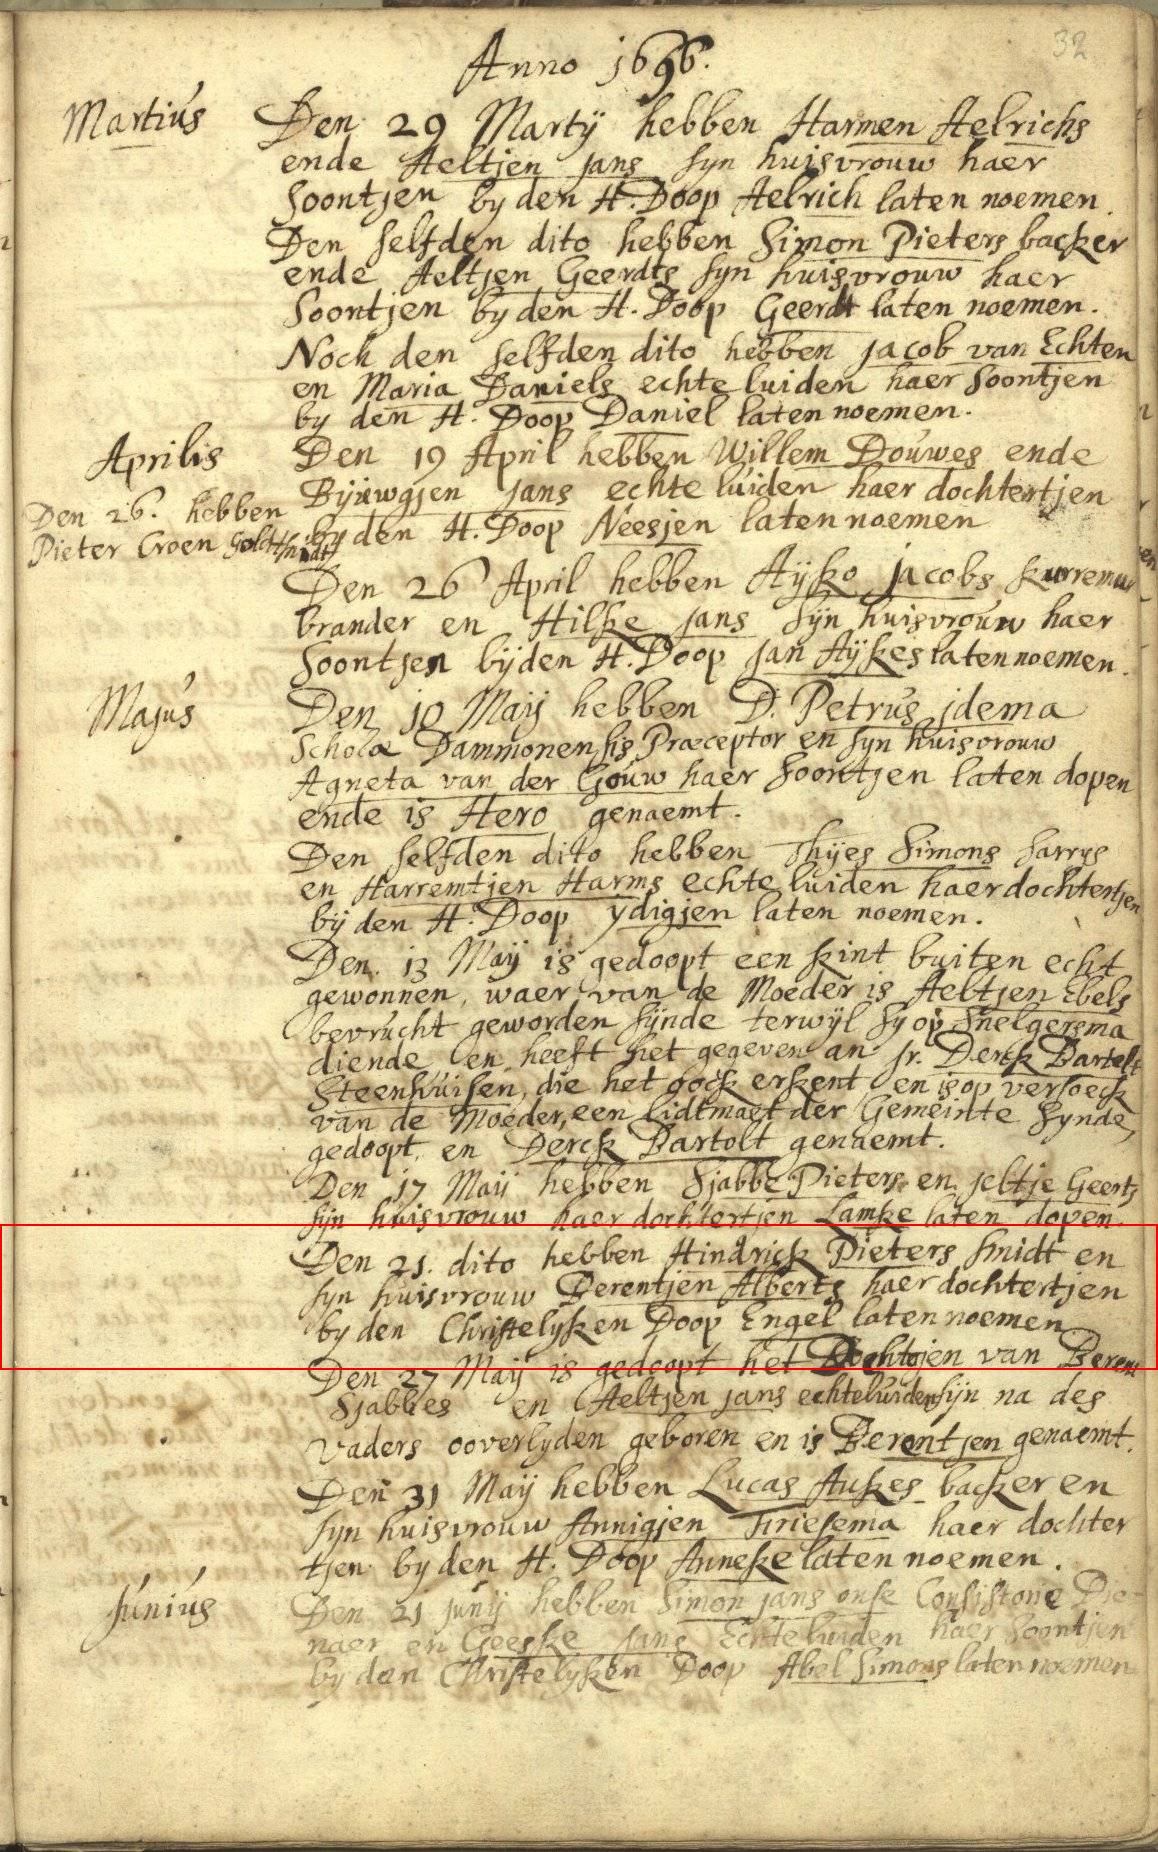 32
Anno 1696.
Martius
Den 29 Martÿ hebben Harmen Aelrichs
ende Aeltjen Jans syn huisvrouw haer
soontjen by den H. Doop Aelrich laten noemen.
Den selfden dito hebben Simon Pieters backer
ende Aeltjen Geerdts syn huisvrouw haer
Soontjen by den H. Doop Geerdt laten noemen.
Noch den selfden dito hebben Jacob van Echten
en Maria Daniels echte luiden haer soontjen
by den H. Doop Daniel laten noemen.
Aprilis
Den 19 April hebben Willem Douwes ende
Jans echte luiden haer dochtertjen
by den H. Doop Neesjen laten noemen
Den 26. hebben
Pieter Croen Goldtsmidt
Den 26 April hebben Aÿko Jacobs
brander en Hilke Jans sÿn huisvrouw haer
Soontjen bÿ den H. Doop Jan Aÿkes laten noemen.
Majus
Den 10 Maÿ hebben D. Petrus Jdema
Scholæ Dammonensis Præceptor en syn huisvrouw
Agneta van der Gouw haer soontjen laten dopen
ende is Hero genaemt.
Den selfden dito hebben Thÿes Simons
en Harremtjen Harms echte luiden haer dochtertjen
bÿ den H. Doop Ydigjen laten noemen.
Den 13 Maÿ is gedoopt een kint buiten echt
gewonnen, waer van de Moeder is Aeltjen Ebels
bevrucht geworden sÿnde terwÿl sy op Snelgersma
diende en heeft het gegeven an Jr. Derck Bartelt
Steenhuisen, die het oock erkent en is op versoeck
van de Moeder, een lidtmaet der Gemeinte synde,
gedoopt, en Derck Bartolt genaemt.
Den 17 Maÿ hebben Sjabbe Pieters en Jeltje Geerts
sÿn huisvrouw haer dochtertjen Lamke laten dopen.
Den 21. dito hebben Hindrick Pieters smidt en
syn huisvrouw Berentjen Alberts haer dochtertjen
by den Christelyken Doop Engel laten noemen
Den 27 Maÿ is gedoopt het Dochtjen van Beren
Sjabbes en Aeltjen Jans echteluiden sÿn na des
vaders ooverlyden geboren en is Berentjen genaemt.
Den 31 Maÿ hebben Lucas Aukes backer en
syn huisvrouw Annigjen Friesema haer dochter
tjen by den H. Doop Anneke laten noemen.
Junius
Den 21 Junÿ hebben Simon Jans onse Consistorie Die-
naer en Geeske Jans Echteluiden haer Soontjen
by den Christelyken Doop Abel Simons laten noemen